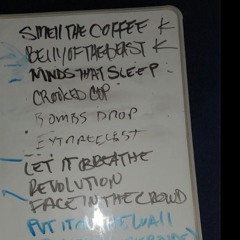 SMELL THE COFFEE K
BELLY OF THE BEAST K
MINDS THAT SLEEP
CROOKED COP
BOMBS DROP
LET IT BREATHE
REVOLUTION
FACE IN THE CROWD
PUT IT ON THE WALL